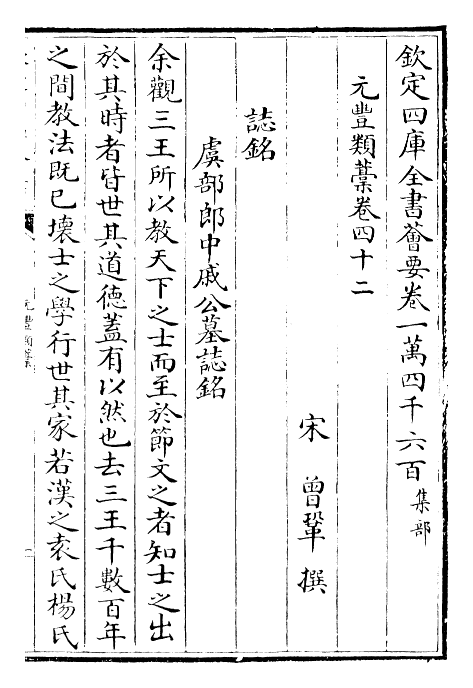 欽定四庫全書薈要卷一萬四千六百集部
元豐類藁卷四十二
宋曾鞏撰
誌銘
虞部郎中戚公墓誌銘
余觀三王所以教天下之士而至於節文之者知士之出
於其時者皆世其道德蓋有以然也去三王千數百年
之間教法既已壊士之學行世其家若漢之袁氏楊氏
元豐類藁